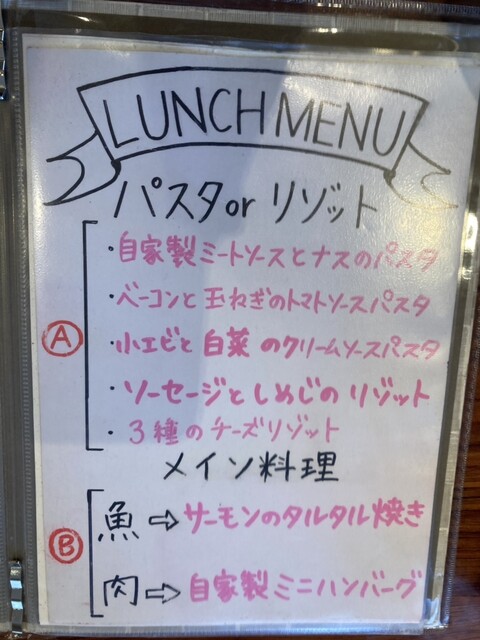 LUNCH MENU
パスタor リゾット
Ⓐ
・自家製ミートソースとナスのパスタ
・ベーコンと玉ねぎのトマトソースパスタ
・小エビと白菜のクリームソースパスタ
・ソーセージとしめじのリゾット
・3種のチーズリゾット
メイン料理
Ⓑ
魚⇨サーモンのタルタル焼き
肉⇨自家製ミニハンバーグ